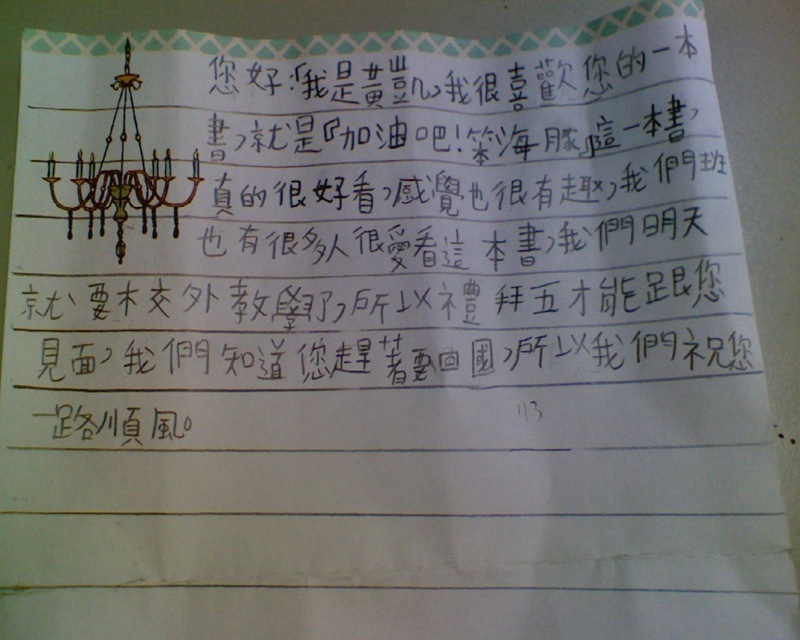 您好:「我是黃凱,我很喜歡您的一本
書,就是『加油吧!笨海豚』這一本書,
真的很好看,感覺也很有趣,我們班
也有很多人很愛看這本書,我們明天
就要木交外教學了,所以禮拜五才能跟您
見面,我們知道您趕著要回國,所以我們祝您
一路順風。
113